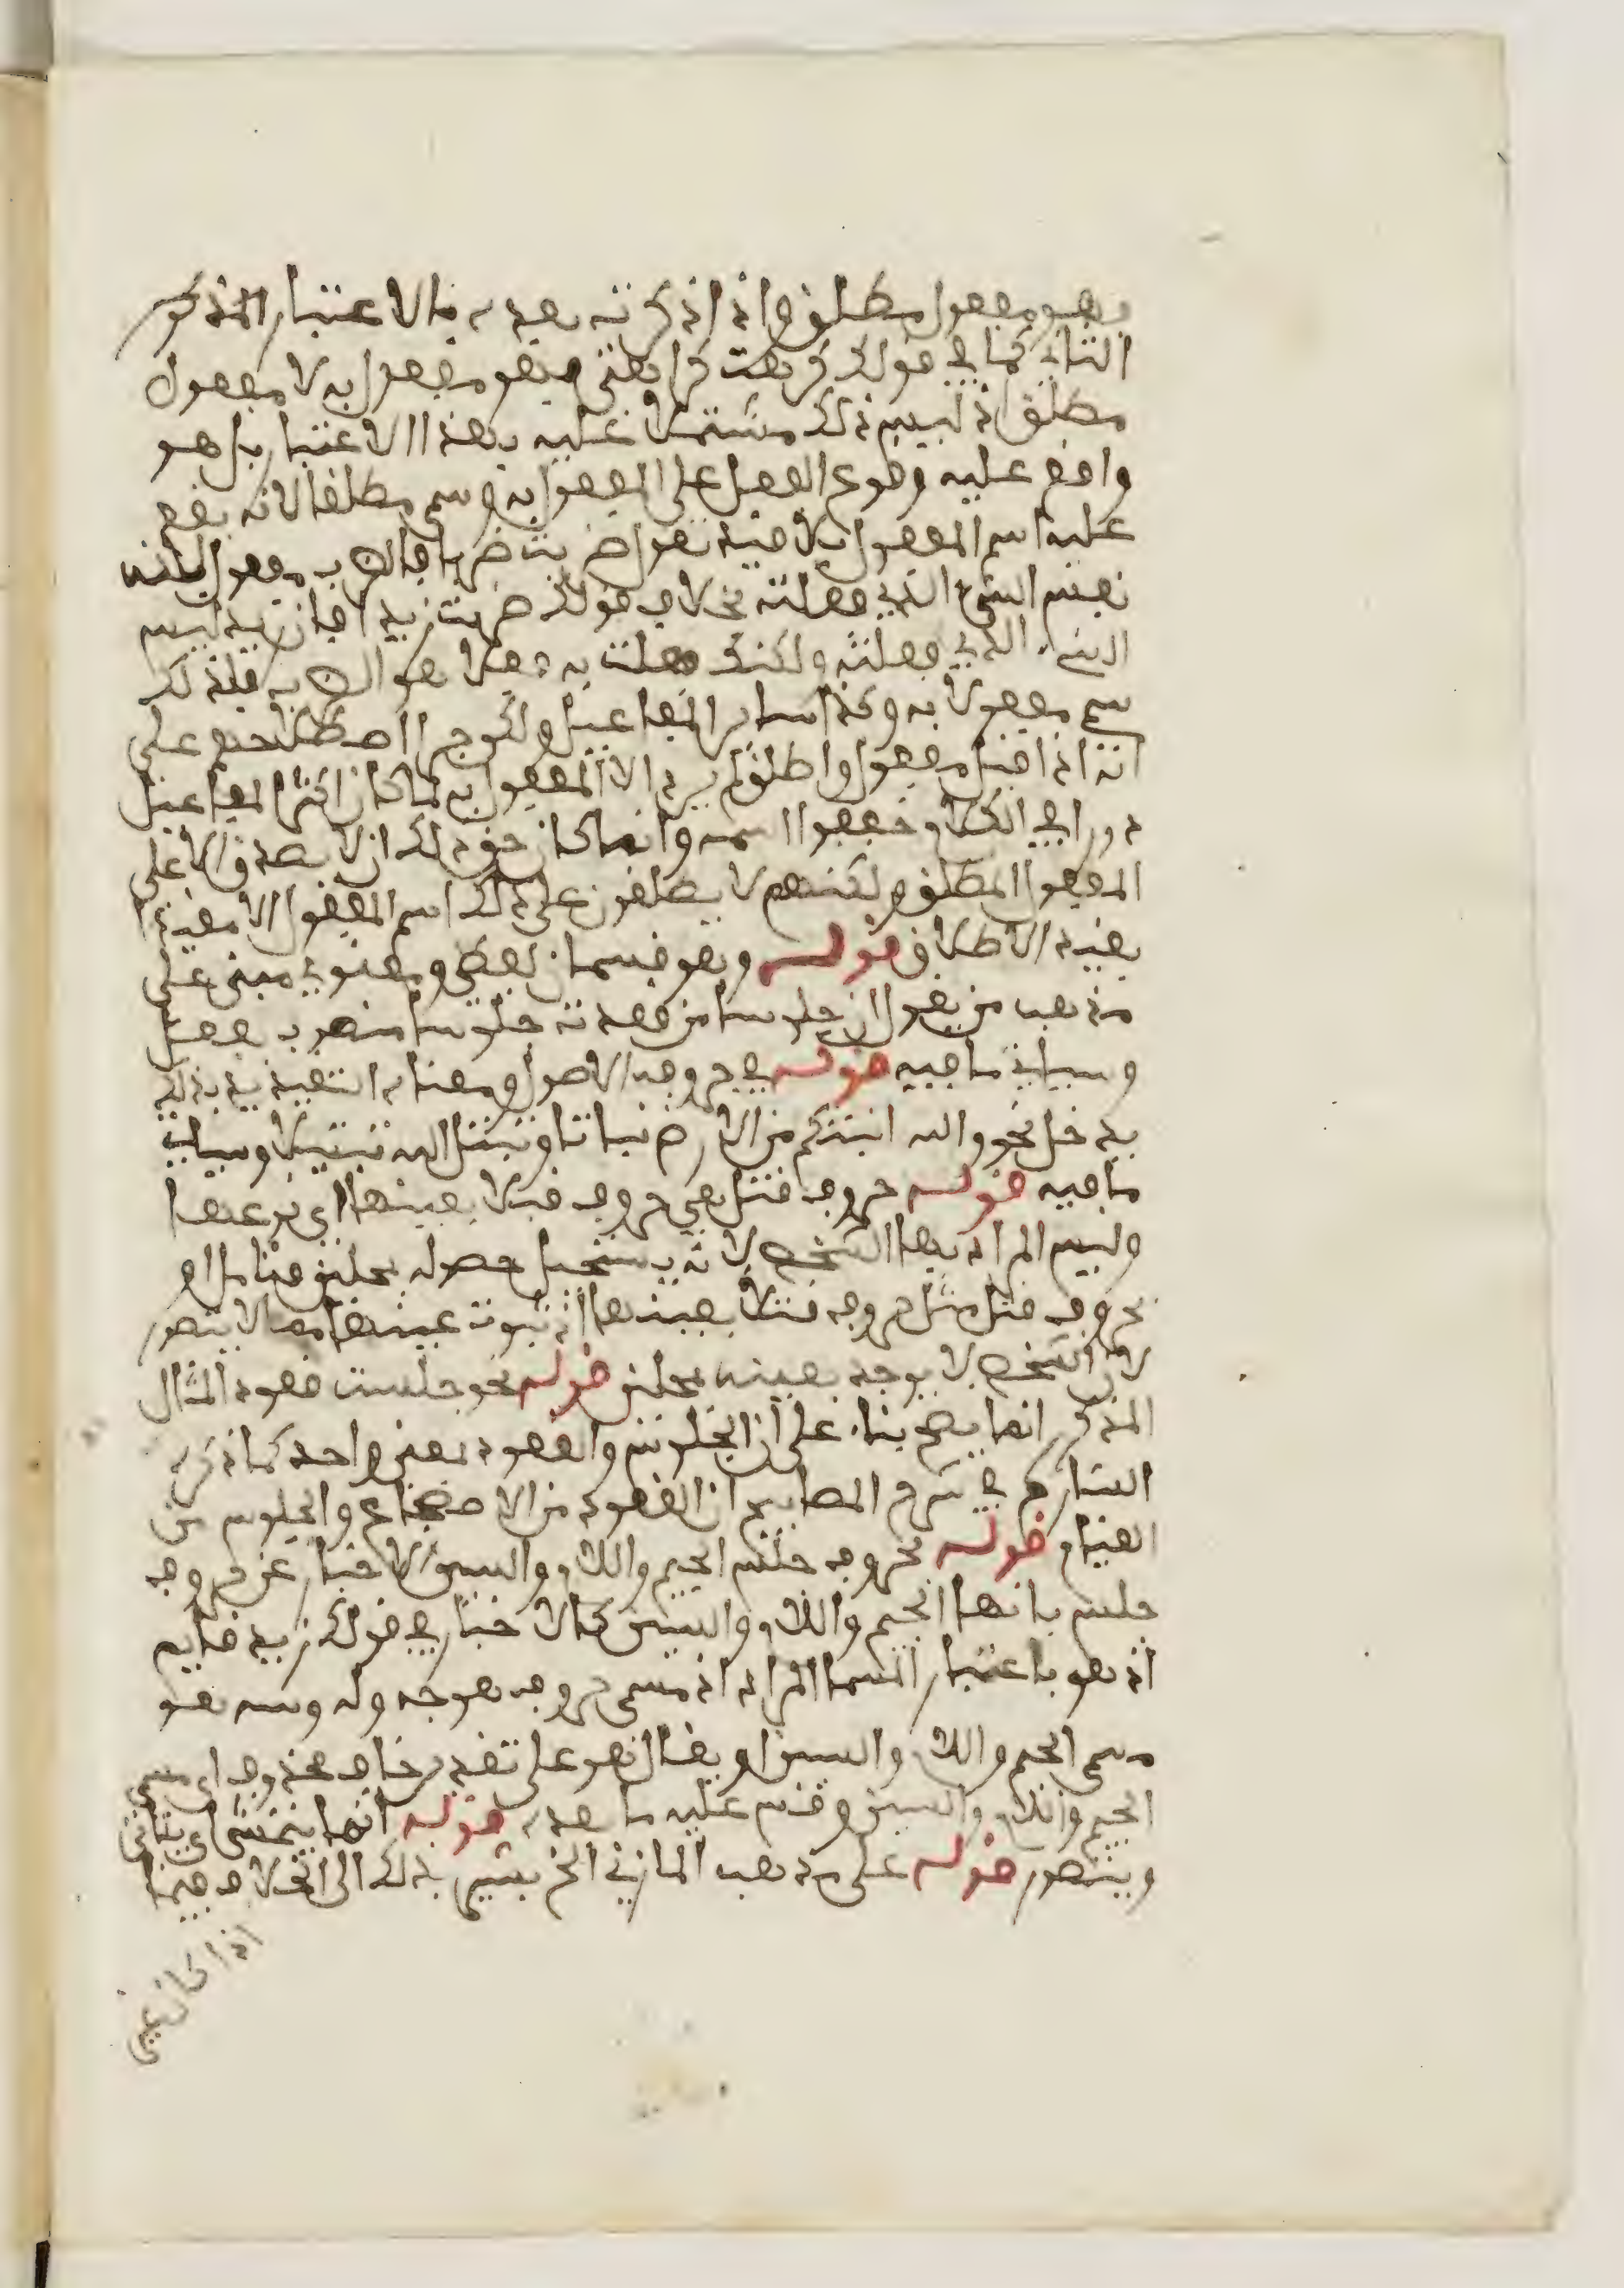 فهو مفعول مطلق واذا ذكرته بعده بالاعتبار المذكور
الثاني كما في قولك كرهت كراهتي فهو مفعول به لا مفعول
مطلق اذ ليس ذلك مشتملا عليه بهذا الاعتبار بل هو
واقع عليه وقوع الفعل على المفعول به وسمي مطلقا لانه يقع
عليه اسم المفعول بلا قيد تقول ضربت ضربا فالضرب مفعول لانه
نفس الشيء الذي فعلته بخلاف قولك ضربت زيدا فان زيدا ليس
الشيء الذي فعلته ولكنك فعلت به فعلا هو الضرب فلذلك
سمي مفعولا به وكذا سائر المفاعيل ولكن جرى اصطلاحهم على
انه اذا قيل مفعول واطلق لم يرد الا المفعول به لما كان اكثر المفاعيل
دورا في الكلام خففوا اسمه وانما كان حق ذلك ان لا يصدق الا على
المفعول المطلق ولكنهم لا يطلقون على ذلك اسم المفعول الا مقيدا
بقيد الاطلاق قوله وهو قسمان لفظي ومعنوي مبني على
مذهب من يقول ان جلوسا من قعدت جلوسا منصوب بفعل
وسياتي ما فيه قوله في حروفه الاصول ومعناه التقييد بذلك
يدخل نحو والله انبتكم من الارض نباتا وتبتل اليه تبتيلا وسياتي
ما فيه قوله حروف قتل هي حروف قتلا بعينها اي نوعها
وليس المراد بها الشخص لانه يستحيل حصوله بمحلين فتامل او
بحروف قتل مثل حروف قتلا بعينها اذ ثبوت عينها مما لا يتصور
لان الشخص لا يوجد بعينه بمحلين قوله نحو جلست قعود المثال
المذكور انما يصح بناء على ان الجلوس والقعود بمعنى واحد كما ذكره
الشارح في شرح المصابيح ان القعود من الاضطجاع والجلوس من
القيام قوله بحروف جلس الجيم واللام والسين الاخبار عن حروف
جلس بانها الجيم واللام والسين كالاخبار في قولك زيد قايم
اذ هو باعتبار المسمى المراد اذ مسمى حروف هو جه وله وسه هو
مسمى الجيم واللام والسين او يقال هو على تقدير مضاف محذوف اي مسمى
الجيم واللام والسين وقس عليه ما بعده قوله انما يتمشى اي يتاتى
ويتصور قوله على مذهب المازني الخ يشير بذلك الى الخلاف فيما
اذا كان في